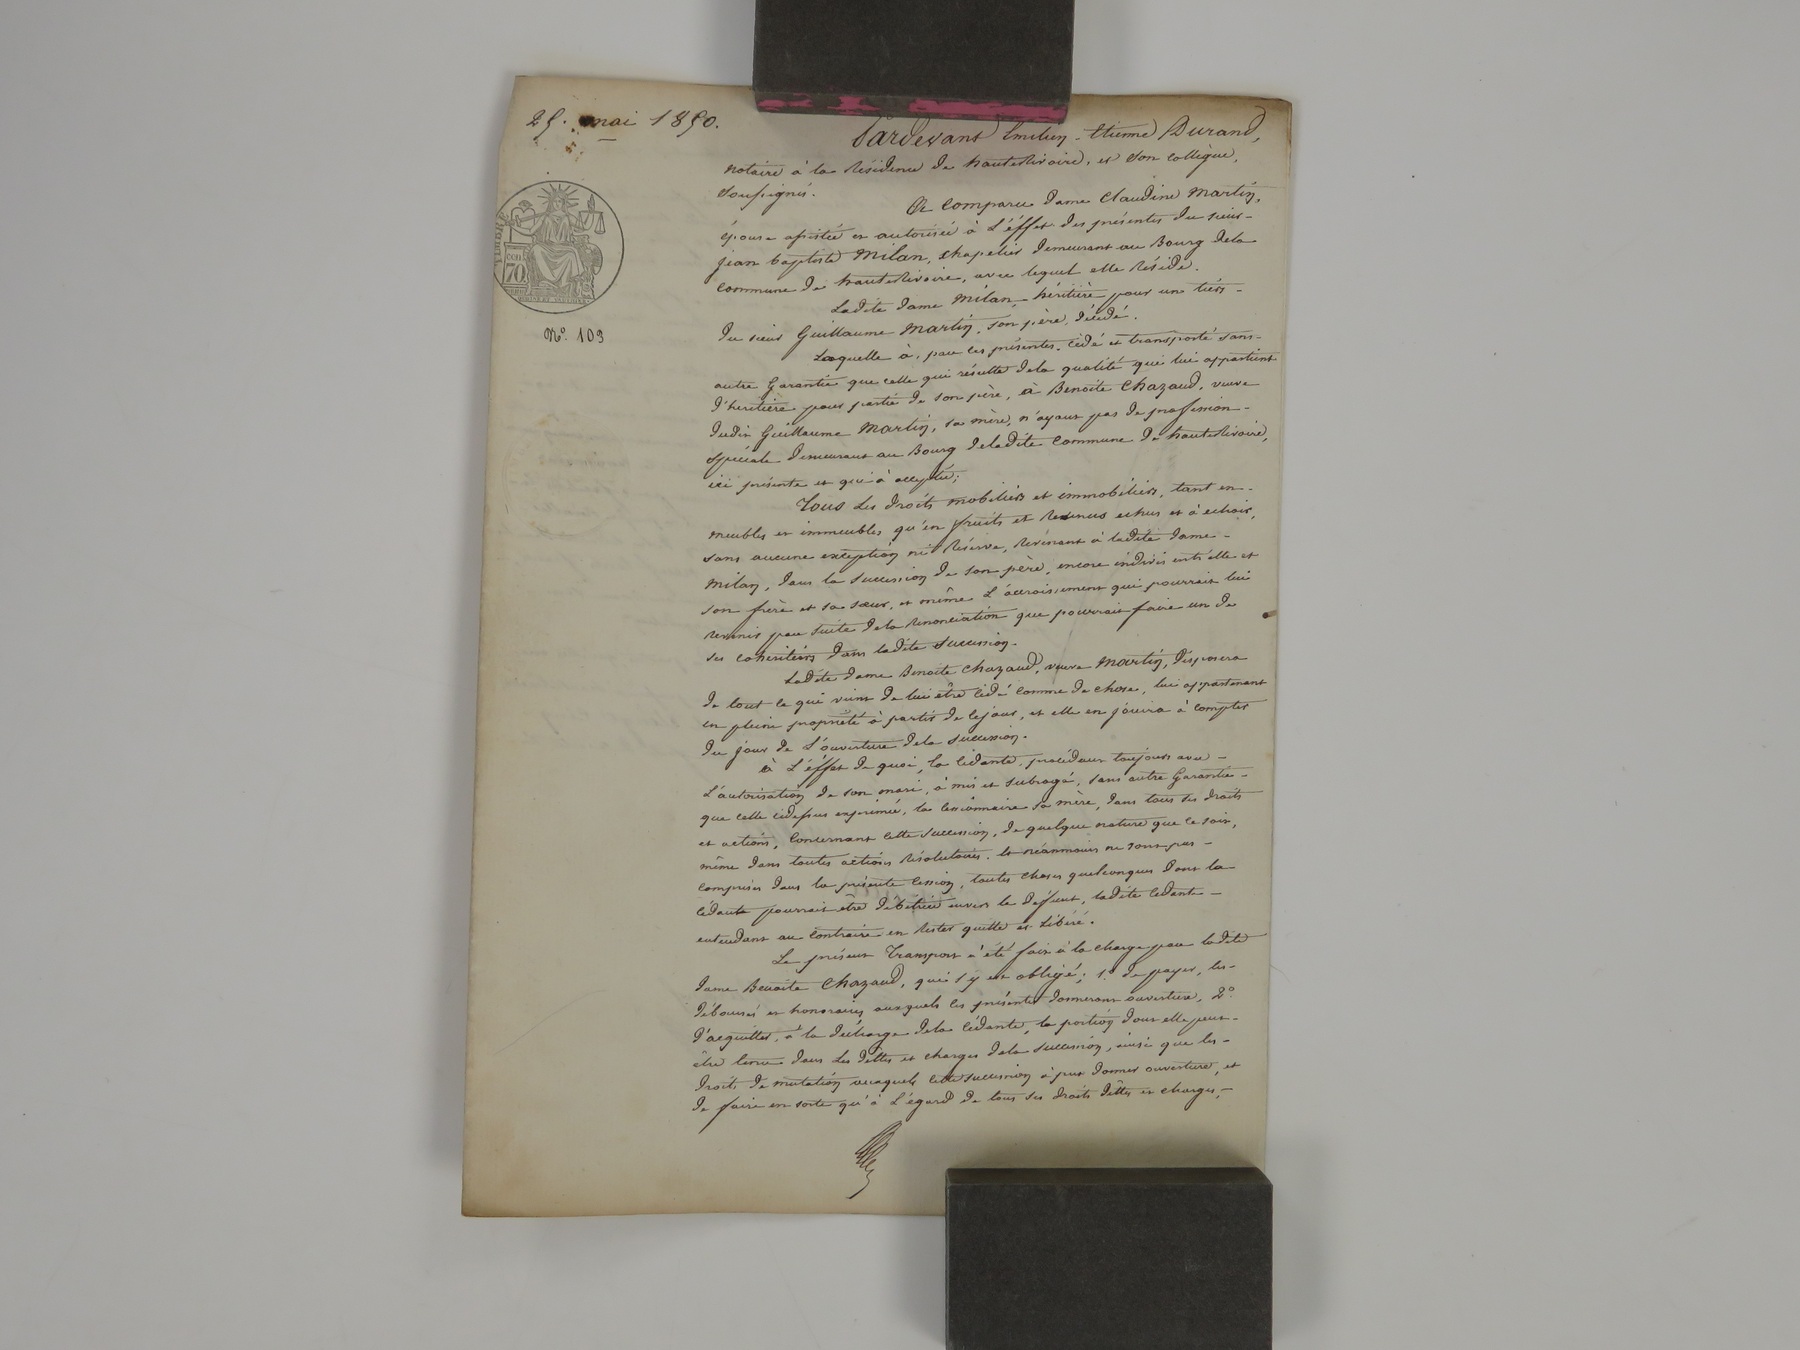 25. mai 1850.
Pardevant Emilien-Etienne Durand,
notaire à la Résidence de hauteRivoire, et son collègue,
soussignés.
TIMBRE
70
N.o 103
A comparu dame Claudine Martin,
épouse assistée et autorisée à L'éffet des présentes du sieur
jean baptiste Milan, chapelier demeurant au Bourg dela
commune de hauteRivoire, avec lequel elle Réside.
Ladite dame Milan héritière pour un tiers
du sieur Guillaume Martin, son père, décédé.
Laquelle à, par ces présentes, cédé et transporté sans
autre Garantie que celle qui résulte dela qualité qui lui appartient
d'heritière pour partie de son père, à Benoite Chazaud, veuve
dudit Guillaume Martin, sa mère, n'ayant pas de profession
spéciale demeurant au Bourg deladite commune de hauteRivoire,
ici présente et qui à accepté;
Tous les droits mobiliers et immobiliers, tant en
meubles et immeubles qu'en fruits et Revenus echus et à echoir,
sans aucune exception ni Réserve, Revenant à ladite dame
Milan, dans la succession de son père, encore indivis entr'elle et
son frère et sa sœur, et même L'accroissement qui pourrait lui
revenir par suite dela Renonciation que pourrait faire un de
ses cohéritiers dans ladite succession.
Ladite dame Benoite Chazaud, veuve Martin, disposera
de tout ce qui vient de lui être cédé comme de chose, lui appartenant
en pleine propriété à partir de cejour, et elle en jouira à compter
du jour de L'ouverture dela succession.
à L'éffet de quoi, la cédante, procédant toujours avec
L'autorisation de son mari, à mis et subrogé, sans autre Garantie
que celle cidessus exprimée, la cessionnaire sa mère, dans tous ses droits
et actions, concernant cette succession, de quelque nature que ce soit,
même dans toutes actions Résolutoires. Et néanmoins ne sont pas
comprises dans la présente cession, toutes choses quelconques dont la
cédante pourrait être débitrice envers le défunt, ladite cédante
entendant au contraire en Rester quitte et Libéré.
Le présent Transport à été fait à la charge par ladite
dame Benoite Chazaud, qui s'y est obligé; 1.o de payer, les
déboursés et honoraires auxquels les présentes donneront ouverture, 2.o
d'acquitter, à la décharge dela cédante, la portion dont elle peut
être tenue dans les dettes et charges dela succession, ainsi que les
droits de mutation auxquels cette succession à put donner ouverture, et
de faire en sorte qu'à L'égard de tous ses droits dêttes et charges,